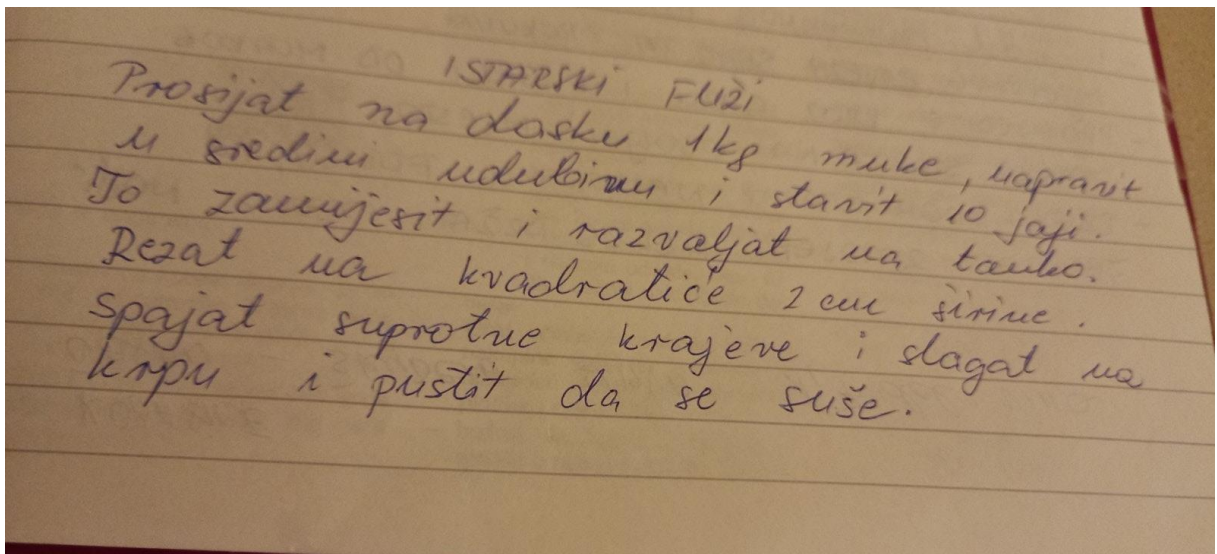 ISTARSKI FUŽI
Prosijat na dasku 1kg muke, napravit
u sredini udubinu i stavit 10 jaji.
To zamijesit i razvaljat na tanko.
Rezat na kvadratiće 2 cm širine.
Spajat suprotne krajeve i slagat na
krpu i pustit da se suše.